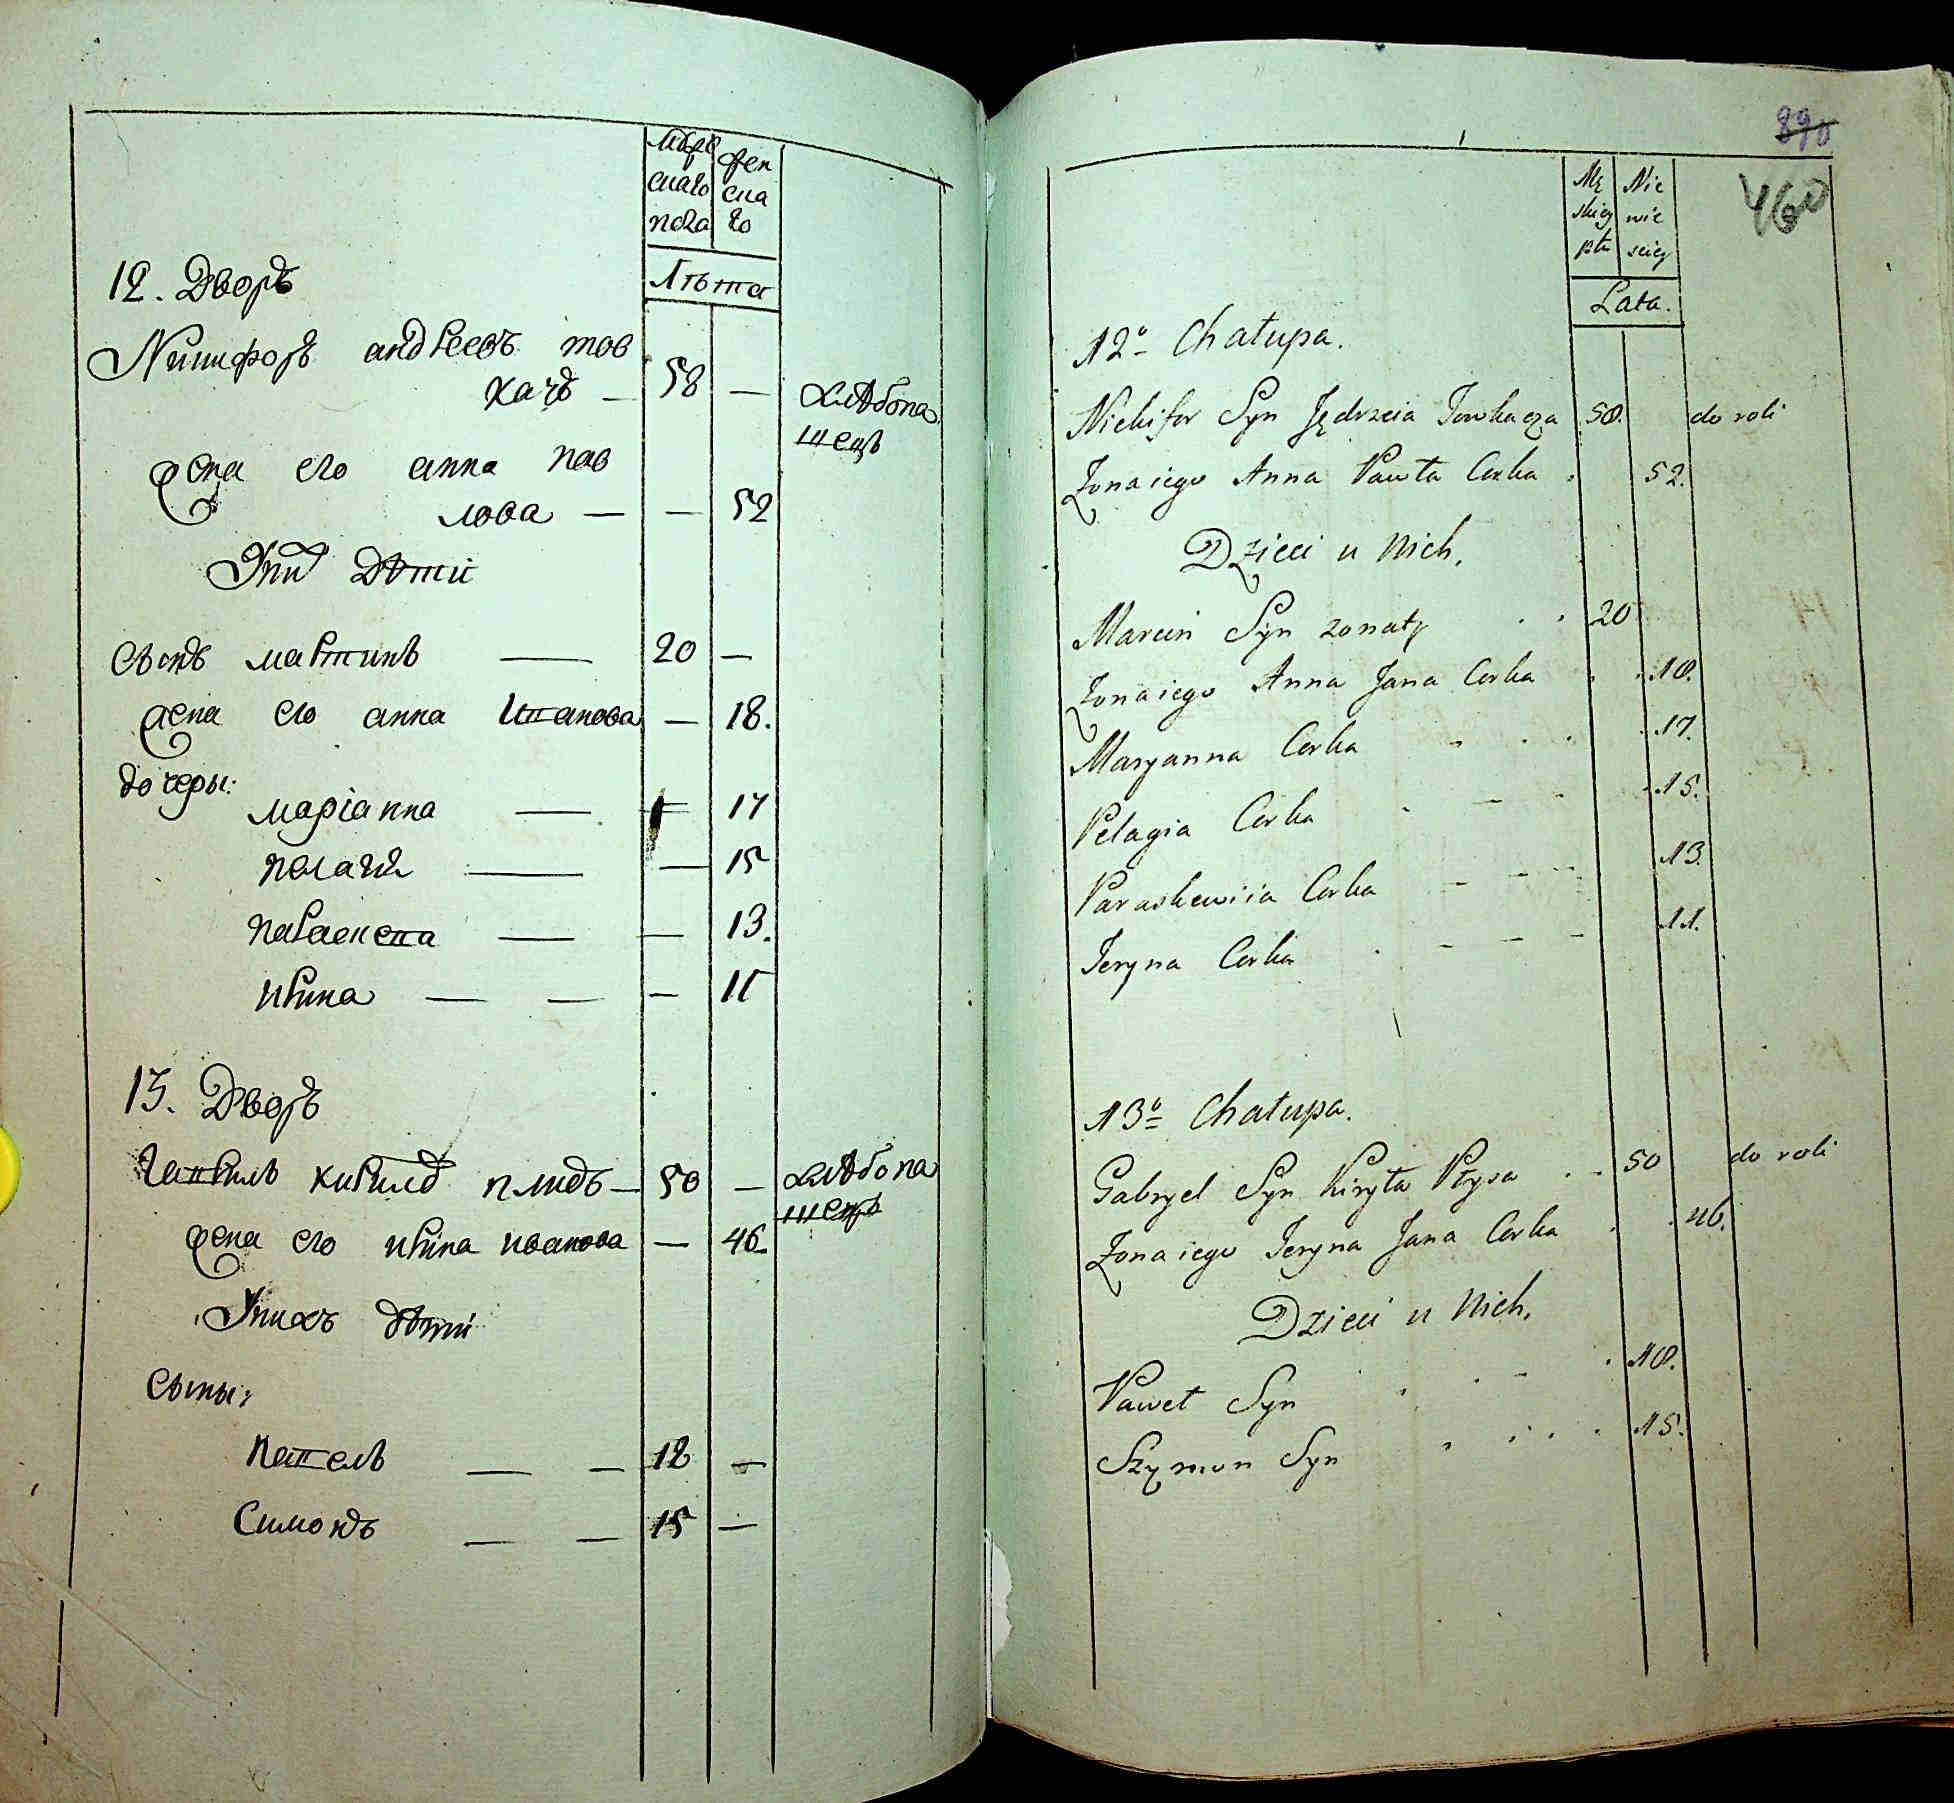 мужс
скаго
пола
жен
ска
го
Лѣта
12. Дворъ
Никифоръ андреевъ тов
качъ — 58 — хлѣбопа
шецъ
жена его анна пав
лова — — 52
У нихъ дѣти
сынъ мартинъ — 20 —
жена его анна иванова — 18.
дочеры:
маріанна — 17
пелагия — — 15
параскева — — 13.
ирина — — — 11
13. Дворъ
гаврилъ кирилъ — 50 — хлѣбопа
шецъ
жена его ирина иванова — 46
У нихъ дѣти
сыны:
павелъ — — 18 —
Симонъ — — 15 —
890
460
Mę
skiey
płci
Nie
wie
sciey
Lata.
12o Chałupa.
Nichifor Syn Jędrzeia Towkacza 58. do roli
Zona iego Anna Pawła Corka 52.
Dzieci u Nich.
Marcin Syn zonaty 20
Zona iego Anna Jana Corka 18.
Maryanna Corka 17.
Pelagia Corka 15.
Paraskewiia Corka 13.
Jeryna Corka 11.
13o Chałupa.
Gabryel Syn Kiryła Płysa 50 do roli
Zona iego Jeryna Jana Corka 46.
Dzieci u Nich.
Paweł Syn 18.
Szymon Syn 15.